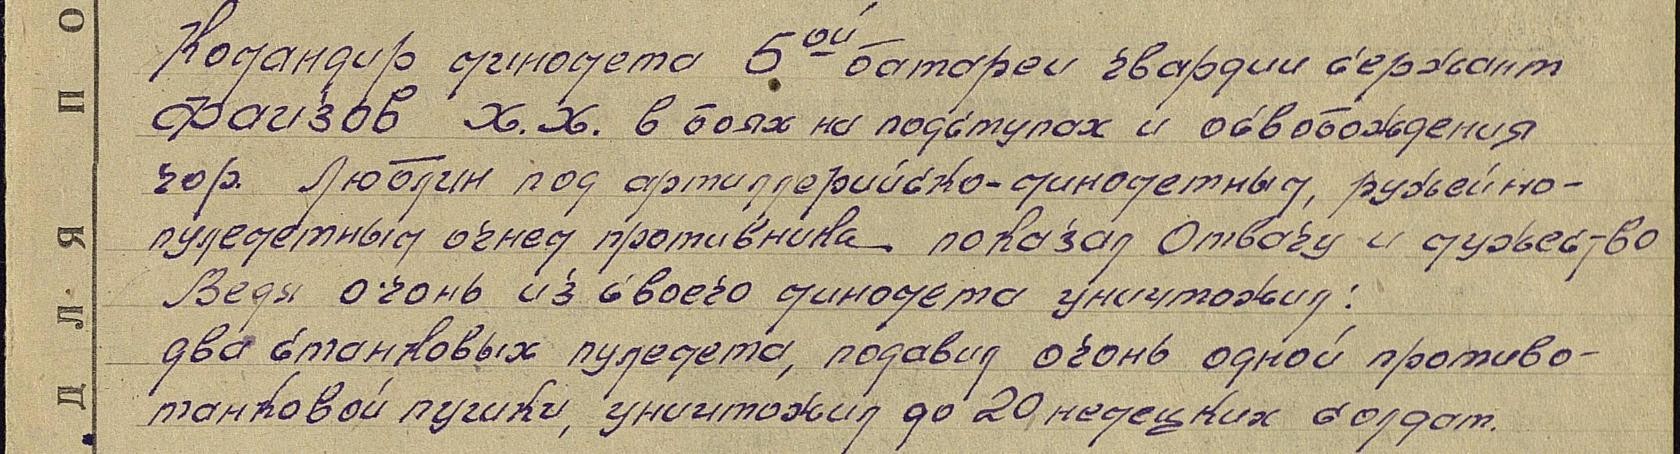 Командир миномета 5ой батареи гвардии сержант
Фаизов Х.Х. в боях на подступах и освобождения
гор. Люблин под артиллерийско-минометным, ружейно-
пулеметным огнем противника показал Отвагу и мужество
Ведя огонь из своего миномета уничтожил:
два станковых пулемета, подавил огонь одной противо-
танковой пушки, уничтожил до 20 немецких солдат.
ДЛЯ ПО